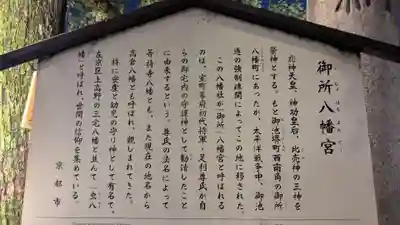 御所八幡宮
ごしょはちまんぐう
応神天皇、神功皇后、比売神の三神を
祭神とする。もと御池堺町西南角の御所
八幡町にあったが、太平洋戦争中、御池
通の強制疎開によってこの地に移された。
この八幡社が「御所」八幡宮と呼ばれる
のは、室町幕府初代将軍・足利尊氏が自
らの邸宅内の守護神として勧請したこと
に由来するという。尊氏の法名によって
等持寺八幡とも、また現在の地名から
高倉八幡とも呼ばれ、親しまれてきた。
特に安産と幼児の守り神として有名で、
左京区上高野の三宅八幡と並んで「虫八
幡」と呼ばれ、世間の信仰を集めている。
京都市